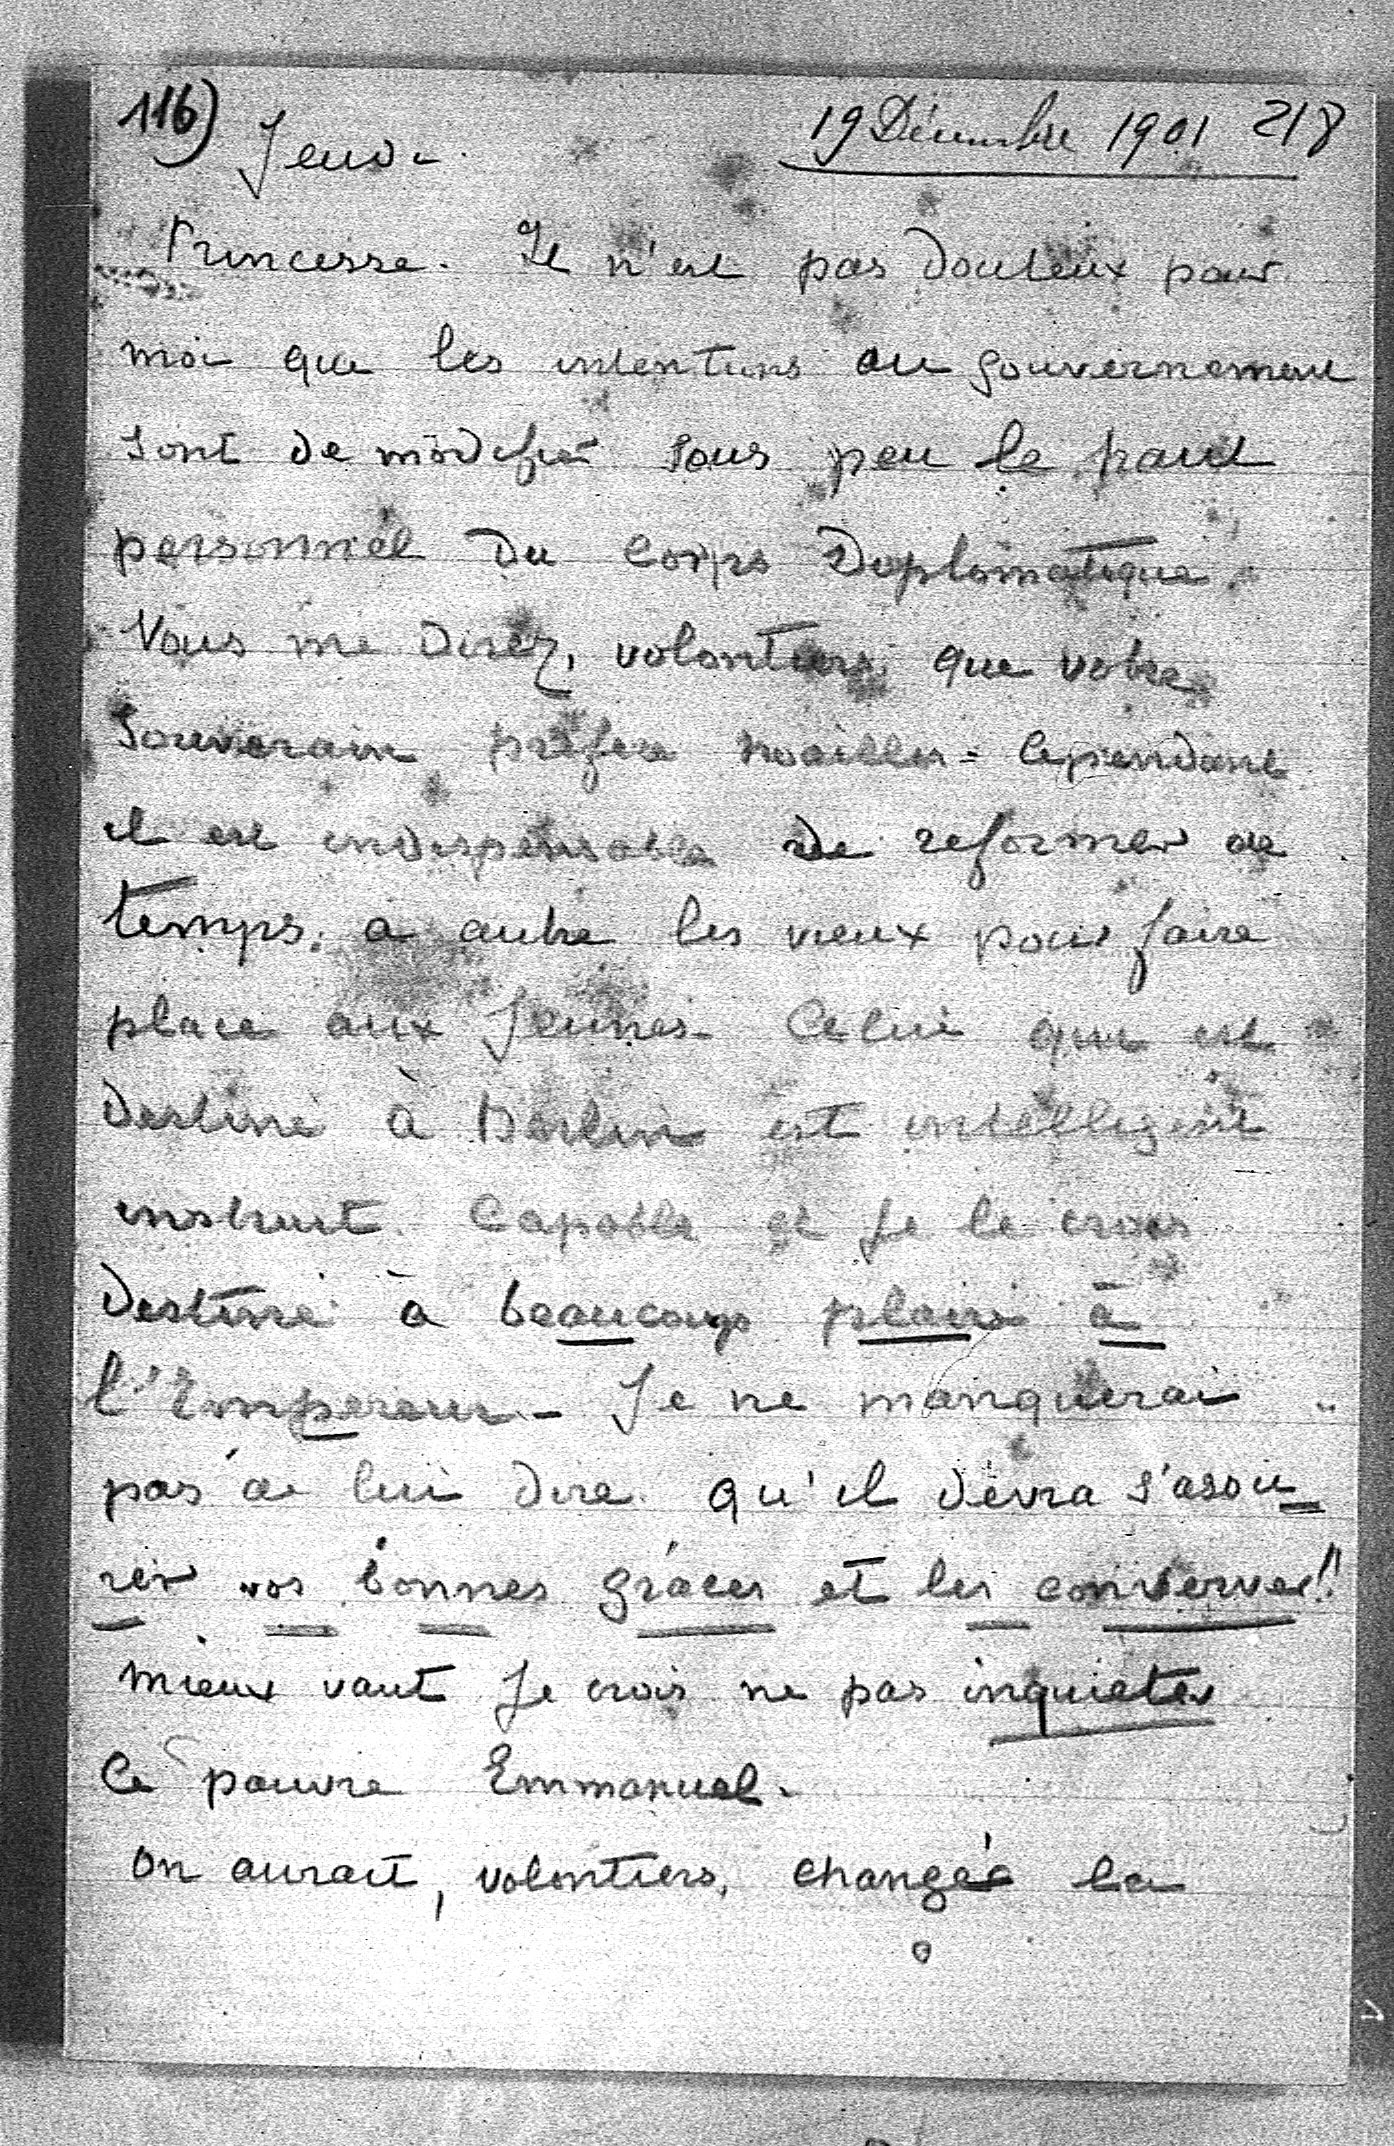 116) Jeudi. 19 Décembre 1901 218
Princesse. Il n'est pas douteux pour
moi que les intentions du gouvernement
sont de modifier sous peu le haut
personnel du Corps Diplomatique.
Vous me direz, volontiers, que votre
Souverain préfère Noailles = Cependant
il est indispensable de reformer de
temps à autre les vieux pour faire
place aux jeunes. Celui qui est
destiné à Berlin est intelligent
instruit Capable et je le crois
destiné à beaucoup plaire à
l'Empereur – Je ne manquerai
pas de lui dire qu'il devra s'assu
rer vos bonnes grâces et les conserver!!
Mieux vaut je crois ne pas inquieter
Ce pauvre Emmanuel.
On aurait, volontiers, changée la